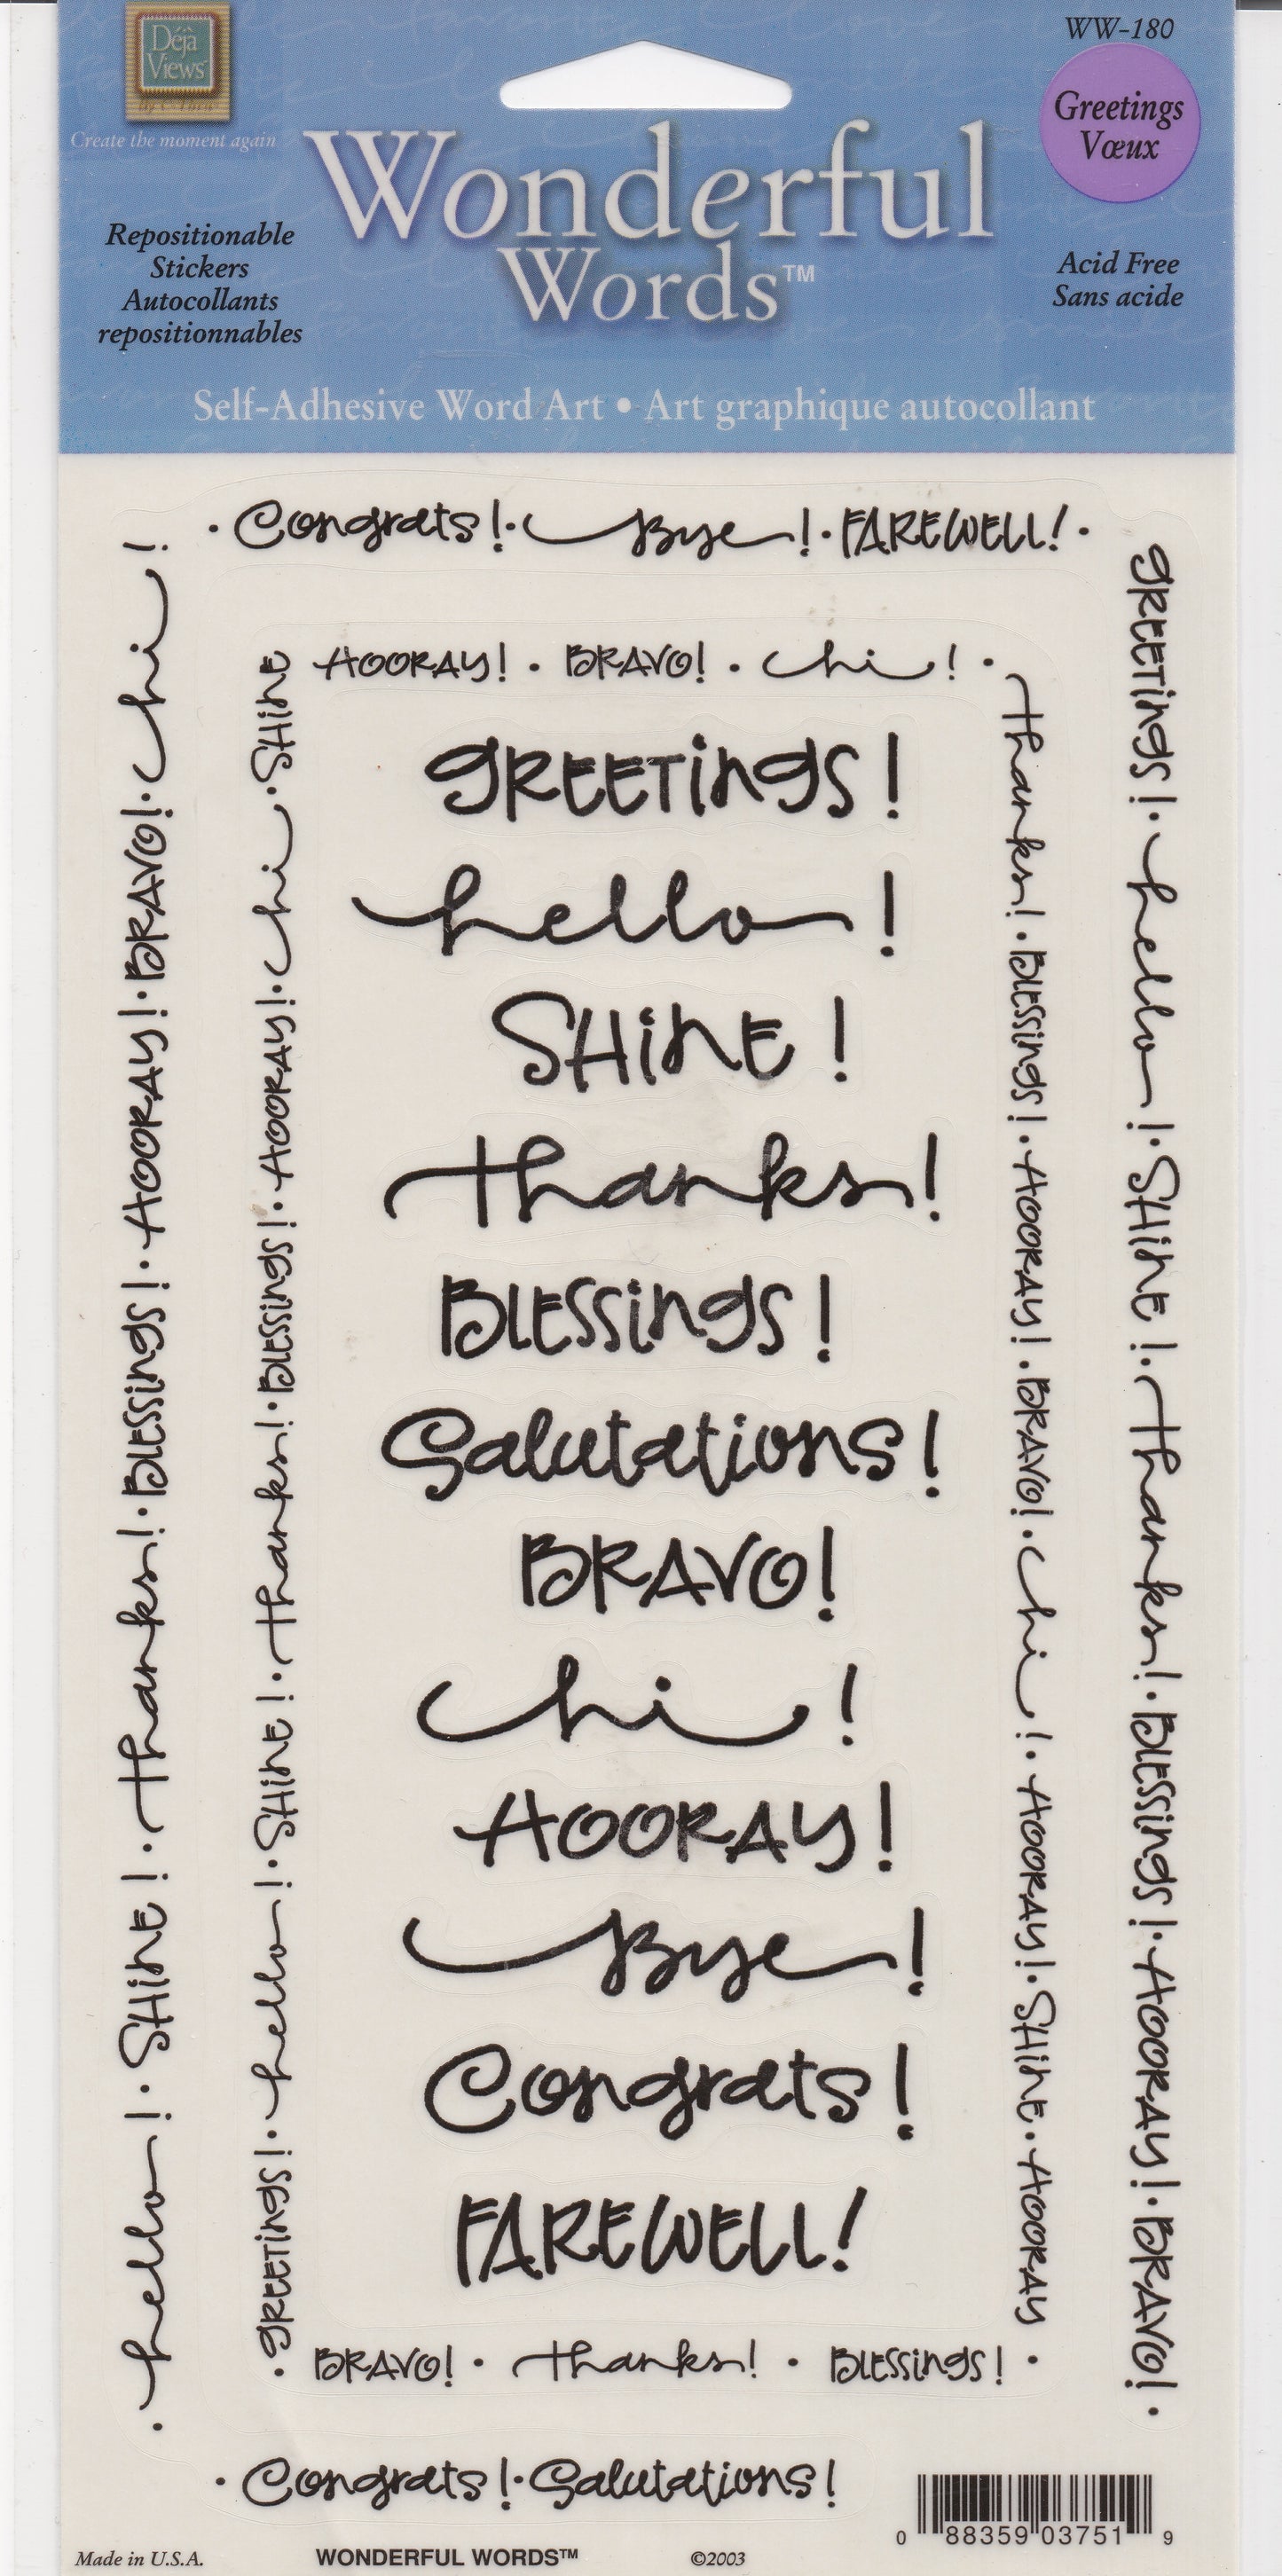 Déjà
Views
by C-Thru
Create the moment again
WW-180
Greetings
Vœux
Wonderful
Words™
Repositionable
Stickers
Autocollants
repositionnables
Acid Free
Sans acide
Self-Adhesive Word Art • Art graphique autocollant
• Congrats! • Bye! • FAREWELL! •
• hello! • SHiNE! • thanks! • BLESSings! • HOORAY! • BRAVO! • hi!
• gREETings! • hello! • SHiNE! • thanks! • BLESSings! • HOORAY! • hi • SHiNE
HOORAY! • BRAVO! • hi! •
gREETings!
hello!
SHiNE!
thanks!
BLESSings!
Salutations!
BRAVO!
hi!
HOORAY!
Bye!
Congrats!
FAREWELL!
thanks! • BLESSings! • HOORAY! • BRAVO! • hi! • HOORAY! • SHiNE • HOORAY
gREETings! • hello! • SHiNE! • thanks! • BLESSings! • HOORAY! • BRAVO! •
BRAVO! • thanks! • BLESSings! •
• Congrats! • Salutations!
0 88359 03751 9
Made in U.S.A. WONDERFUL WORDS™ ©2003